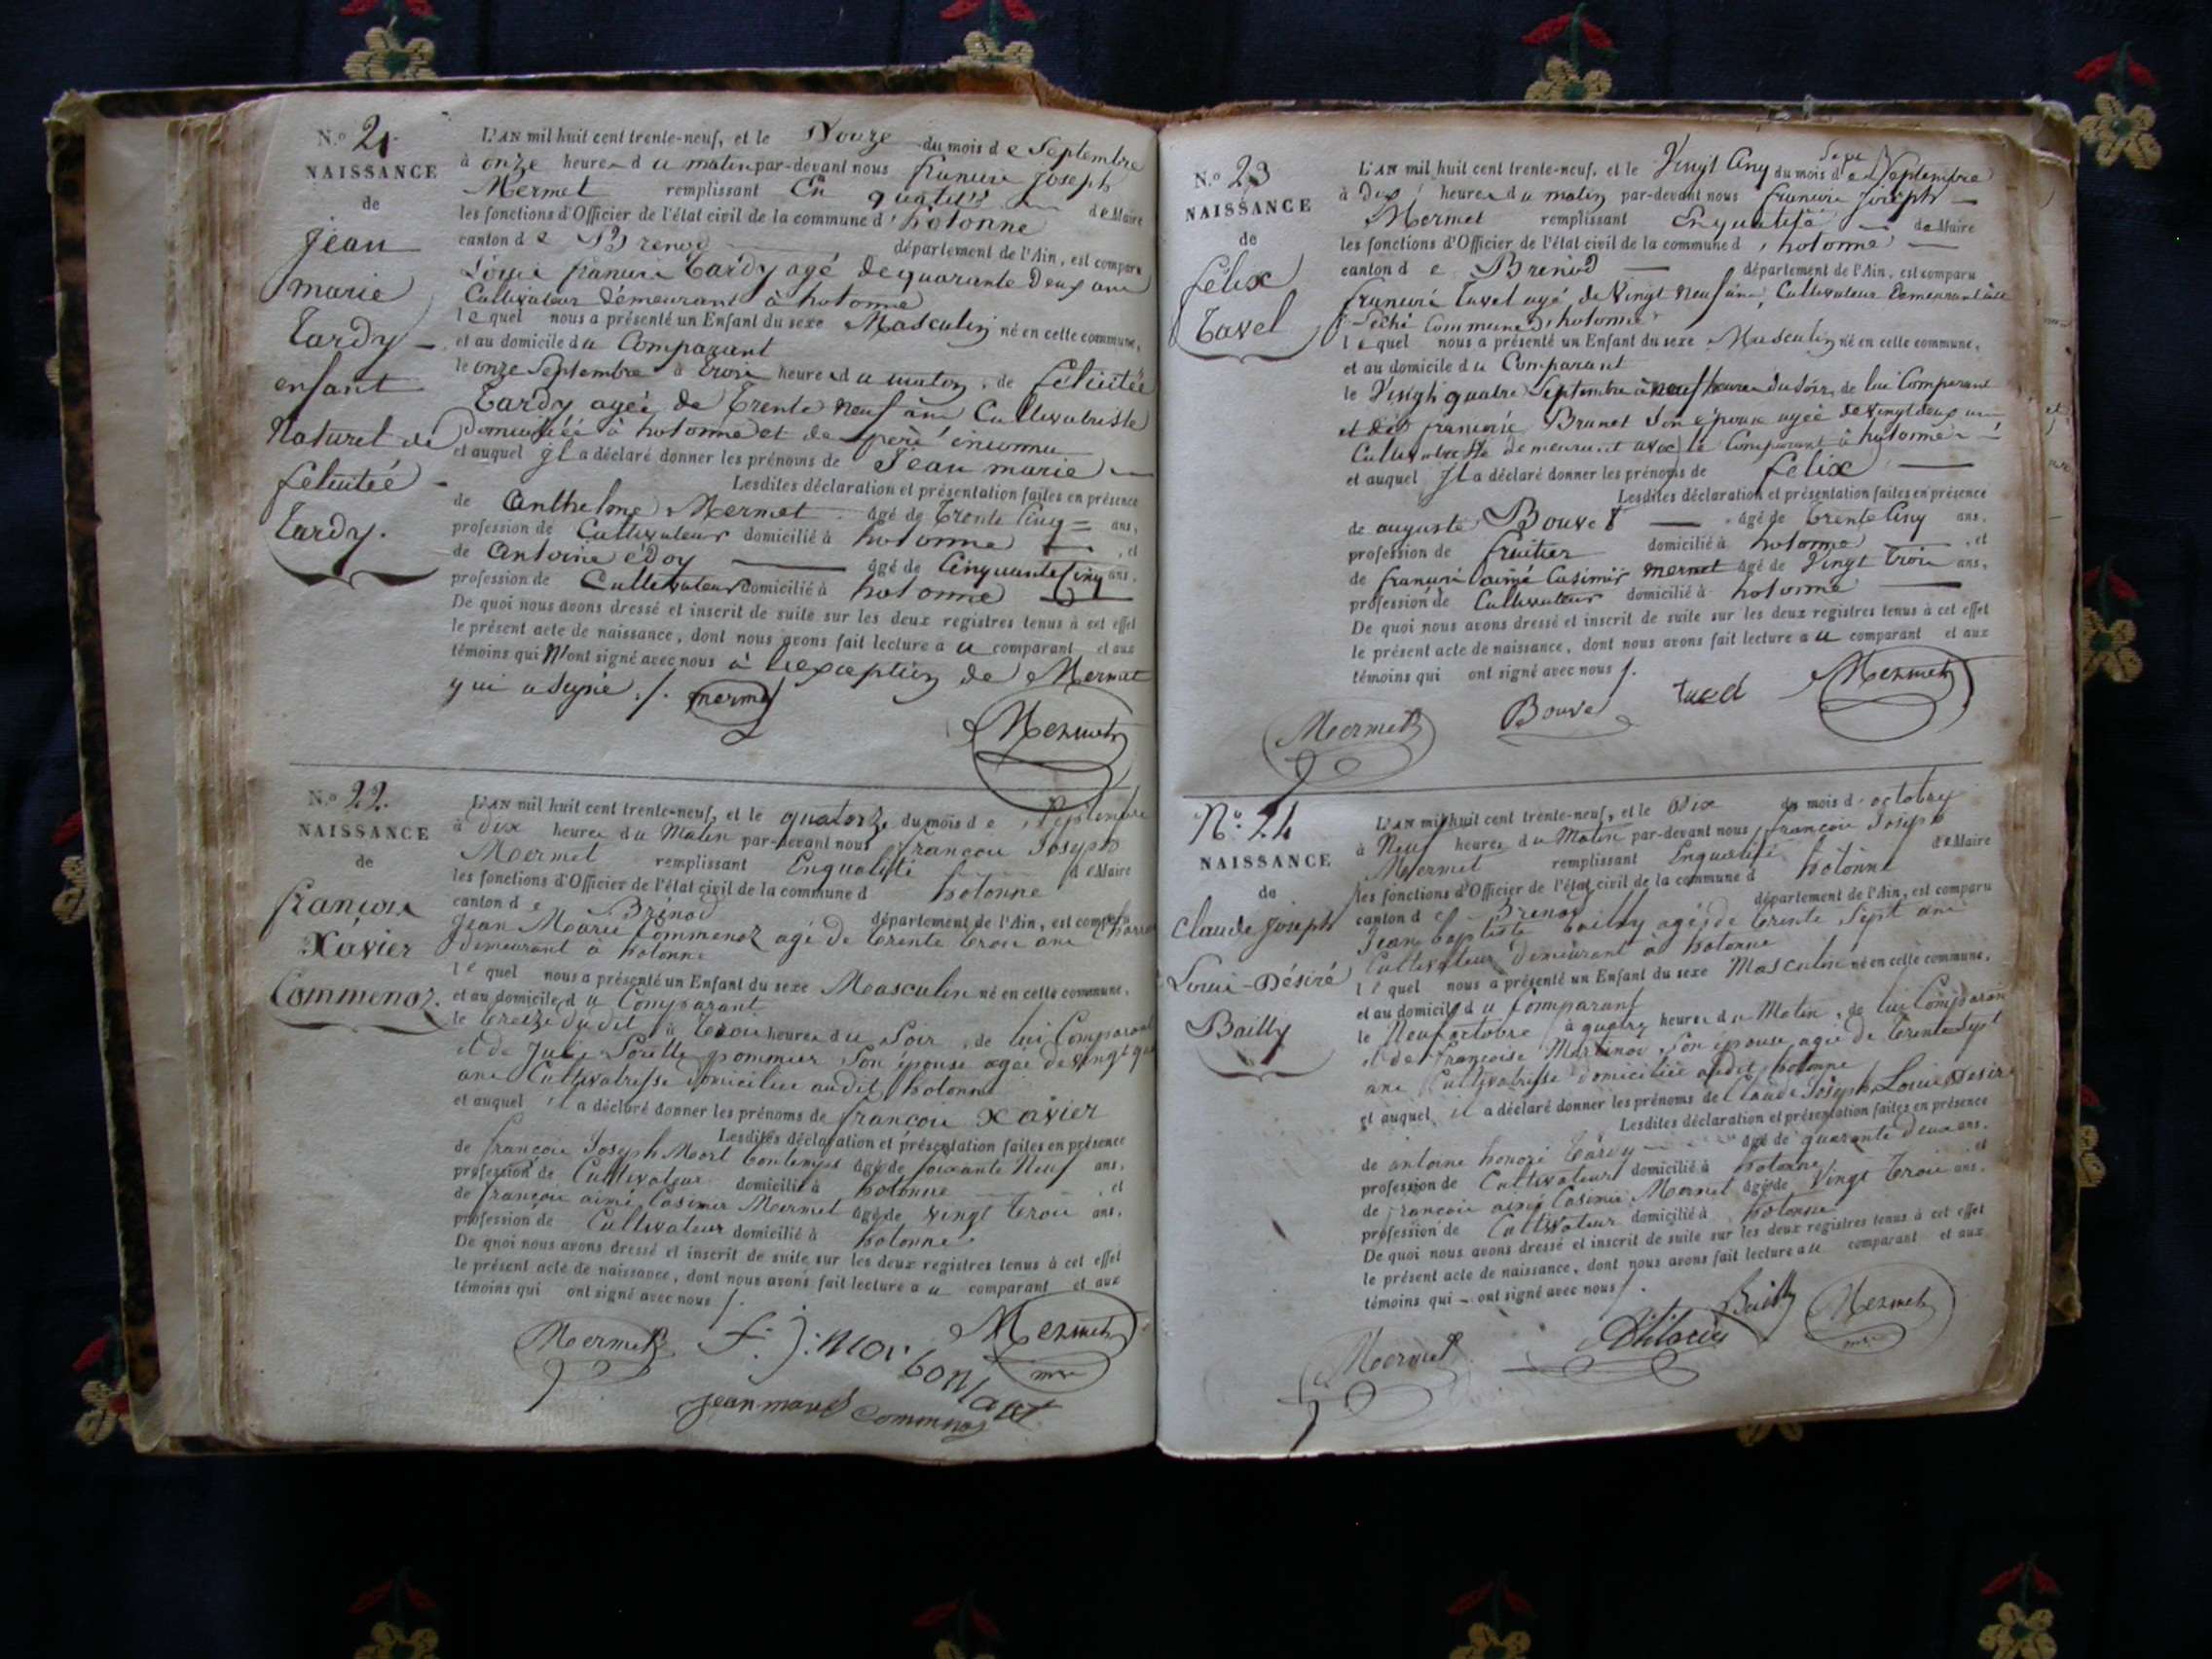 N.o 21.
NAISSANCE
de
jean
marie
tardy
enfant
Naturel de
felicitée
tardy.
L'AN mil huit cent trente-neuf, et le Douze du mois de Septembre
à onze heures du matin par-devant nous francois joseph
Mermet remplissant En qualité de Maire
les fonctions d'Officier de l'état civil de la commune d'hotonne
canton de Brenod département de l'Ain, est comparu
Louis francois tardy agé de quarante Deux ans
Cultivateur demeurant à hotonne
lequel nous a présenté un Enfant du sexe Masculin né en cette commune,
et au domicile du Comparant
le onze Septembre à trois heures du matin, de felicitée
tardy agée de trente neuf ans Cultivatriste
Domiciliée à hotonne et de pere inconnu
et auquel jl a déclaré donner les prénoms de Jean marie
Lesdites déclaration et présentation faites en présence
de Anthelme Mermet âgé de trente Cinq ans,
profession de Cultivateur domicilié à hotonne, et
de Antoine édoy âgé de Cinquante Cinq ans,
profession de Cultivateur domicilié à hotonne
De quoi nous avons dressé et inscrit de suite sur les deux registres tenus à cet effet
le présent acte de naissance, dont nous avons fait lecture au comparant et aux
témoins qui N'ont signé avec nous à l'exception de Mermet
qui a signé ./. mermet
Mermet
N.o 22.
NAISSANCE
de
françois
Xavier
Commenoz.
L'AN mil huit cent trente-neuf, et le quatorze du mois de Septembre
à dix heures du Matin par-devant nous François Joseph
Mermet remplissant Enqualité de Maire
les fonctions d'Officier de l'état civil de la commune d hotonne
canton de Brénod département de l'Ain, est comparu
Jean Marie Commenoz agé de trente trois ans
demeurant à hotonne
lequel nous a présenté un Enfant du sexe Masculin né en cette commune,
et au domicile du Comparant
le treize dudit à trois heures du Soir, de lui Comparant
et de Julie pommier Son épouse agée de vingt
ans Cultivatrisse domiciliée audit hotonne
et auquel il a déclaré donner les prénoms de françois Xavier
Lesdites déclaration et présentation faites en présence
de françois Joseph Mort bontemps âgé de soixante Neuf ans,
profession de Cultivateur domicilié à hotonne, et
de françois aimé Casimir Mermet âgé de vingt trois ans,
profession de Cultivateur domicilié à hotonne
De quoi nous avons dressé et inscrit de suite sur les deux registres tenus à cet effet
le présent acte de naissance, dont nous avons fait lecture au comparant et aux
témoins qui ont signé avec nous /.
Mermet f. j. Mermet
jean marie Commenoz
N.o 23
NAISSANCE
de
félix
tavel
L'AN mil huit cent trente-neuf, et le Vingt Cinq du mois de Septembre
à dix heures du matin par-devant nous francois joseph
Mermet remplissant Enqualité de Maire
les fonctions d'Officier de l'état civil de la commune d'hotonne
canton de Brenod département de l'Ain, est comparu
francois tavel agé de Vingt Neuf ans, Cultivateur demeurant
commune d'hotonne
lequel nous a présenté un Enfant du sexe Masculin né en cette commune,
et au domicile du Comparant
le Vingt quatre Septembre à neuf heures du soir, de lui Comparant
et de Brunet son épouse agée de Vingt deux ans
demeurant avec le Comparant à hotonne
et auquel jl a déclaré donner les prénoms de felix
Lesdites déclaration et présentation faites en présence
de auguste Bouvet âgé de trente Cinq ans,
profession de fruitier domicilié à hotonne, et
de francois aimé Casimir mermet âgé de Vingt trois ans,
profession de Cultivateur domicilié à hotonne
De quoi nous avons dressé et inscrit de suite sur les deux registres tenus à cet effet
le présent acte de naissance, dont nous avons fait lecture au comparant et aux
témoins qui ont signé avec nous /.
Mermet Bouvet tavel Mermet
N.o 24
NAISSANCE
de
claude joseph
Louis-Désiré
Bailly
L'AN mil huit cent trente-neuf, et le Dix du mois d'octobre
à Neuf heures du Matin par-devant nous françois Joseph
Mermet remplissant Enqualité de Maire
les fonctions d'Officier de l'état civil de la commune d hotonne
canton de Brenod département de l'Ain, est comparu
Jean baptiste bailly agé de trente Sept ans
Cultivateur demeurant à hotonne
lequel nous a présenté un Enfant du sexe Masculin né en cette commune,
et au domicile du Comparant
le Neuf octobre à quatre heures du Matin, de lui Comparant
et de françoise Martinod, Son épouse agée de trente Sept
ans Cultivatrisse domiciliée audit hotonne
et auquel il a déclaré donner les prénoms de Claude Joseph Louis Desiré
Lesdites déclaration et présentation faites en présence
de antoine honoré tardy âgé de quarante deux ans,
profession de Cultivateur domicilié à hotonne, et
de francois aimé Casimir Mermet âgé de Vingt trois ans,
profession de Cultivateur domicilié à hotonne
De quoi nous avons dressé et inscrit de suite sur les deux registres tenus à cet effet
le présent acte de naissance, dont nous avons fait lecture au comparant et aux
témoins qui ont signé avec nous /.
Mermet Bailly Mermet